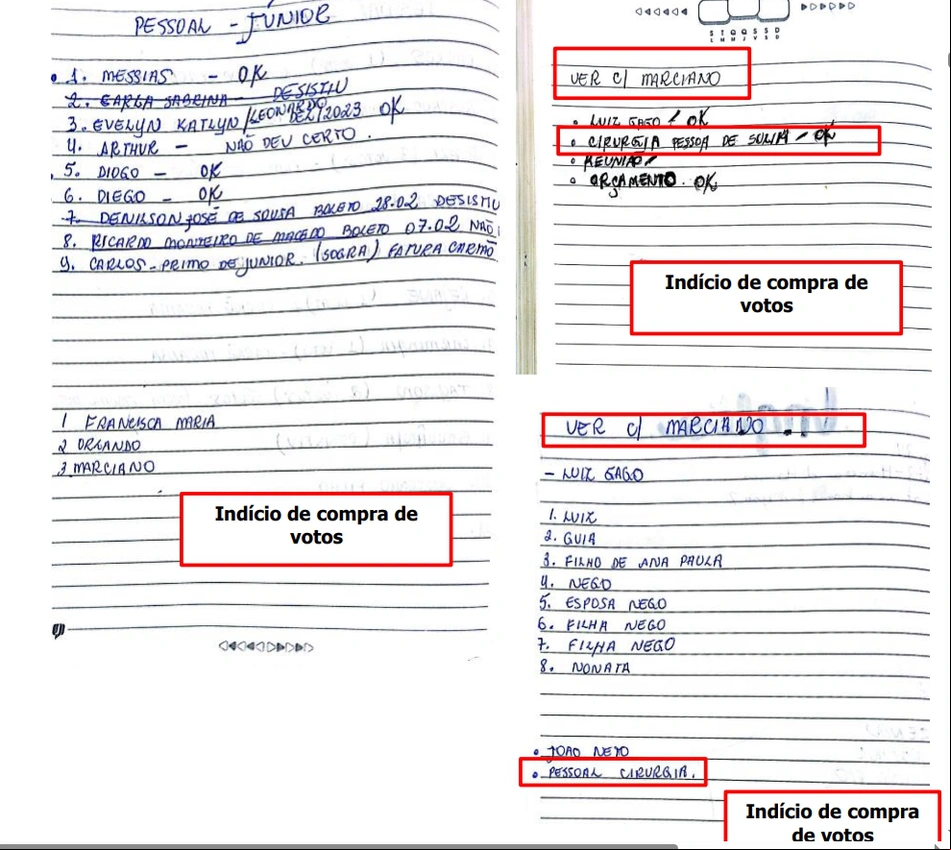 PESSOAL - JÚNIOR
1. MESSIAS - OK
2. CARLA SABRINA - DESISTIU
3. EVELYN KATLYN/LEONARDO DEZ/2023 OK
4. ARTHUR - NÃO DEU CERTO.
5. DIOGO - OK
6. DIEGO - OK
7. DENILSON JOSÉ DE SOUSA BOLETO 28.02 DESISTIU
8. RICARDO MONTEIRO DE MACEDO BOLETO 07.02 NÃO
9. CARLOS - PRIMO DE JUNIOR. (SOGRA) FATURA CARTÃO
1 FRANCISCA MARIA
2 ORLANDO
3 MARCIANO
Indício de compra de
votos
S T Q Q S S D
VER C/ MARCIANO
• LUIZ GAGO / OK
• CIRURGIA PESSOA DE - OK
• REUNIÃO
• ORÇAMENTO. OK
Indício de compra de
votos
VER C/ MARCIANO.
- LUIZ GAGO
1. LUIZ
2. GUIA
3. FILHO DE ANA PAULA
4. NEGO
5. ESPOSA NEGO
6. FILHA NEGO
7. FILHA NEGO
8. NONATA
• JOAO NETO
• PESSOAL CIRURGIA.
Indício de compra
de votos